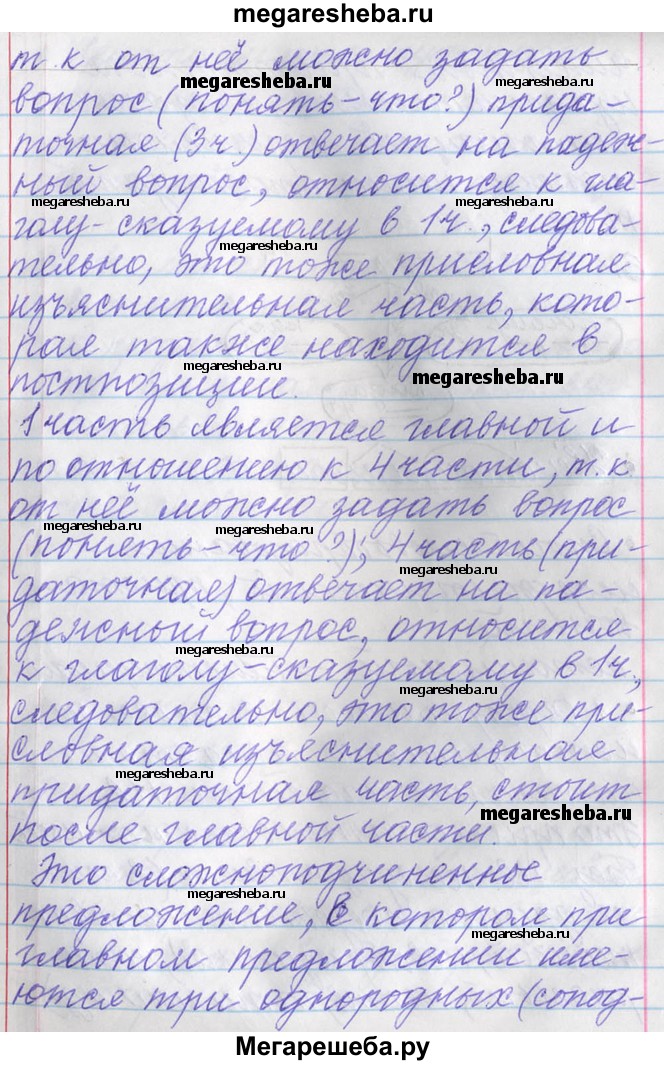 megaresheba.ru
т.к от неё можно задать
megaresheba.ru
megaresheba.ru
вопрос (понять-что?) прида-
точная (3ч.) отвечает на падеж-
ный вопрос, относится к гла-
megaresheba.ru
megaresheba.ru
галу-сказуемому в 1ч., следова-
megaresheba.ru
тельно, это тоже присловная
изъяснительная часть, кото-
рая также находится в
megaresheba.ru
megaresheba.ru
постпозиции.
1 часть является главной и
по отношению к 4 части, т.к.
от неё можно задать вопрос
megaresheba.ru
megaresheba.ru
(понять-что?); 4 часть (при-
megaresheba.ru
даточная) отвечает на па-
дежный вопрос, относится
megaresheba.ru
к глаголу-сказуемому в 1ч.,
megaresheba.ru
следовательно, это тоже при-
словная изъяснительная
megaresheba.ru
придаточная часть, стоит
megaresheba.ru
после главной части.
Это сложноподчиненное
megaresheba.ru
предложение, в котором при
megaresheba.ru
главном предложении име-
ются три однородных (сопод-
megaresheba.ru
Мегарешеба.ру